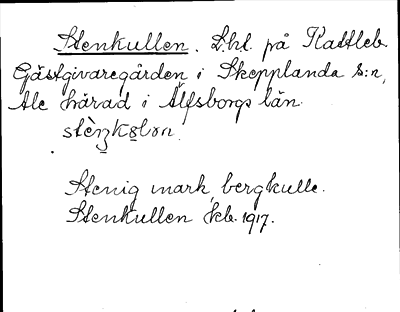 Stenkullen. Lht. på Kattleb.
Gästgivaregården i Skepplanda s:n,
Ale härad i Älfsborgs län.
Stenig mark, bergkulle.
Stenkullen Jkb. 1917.